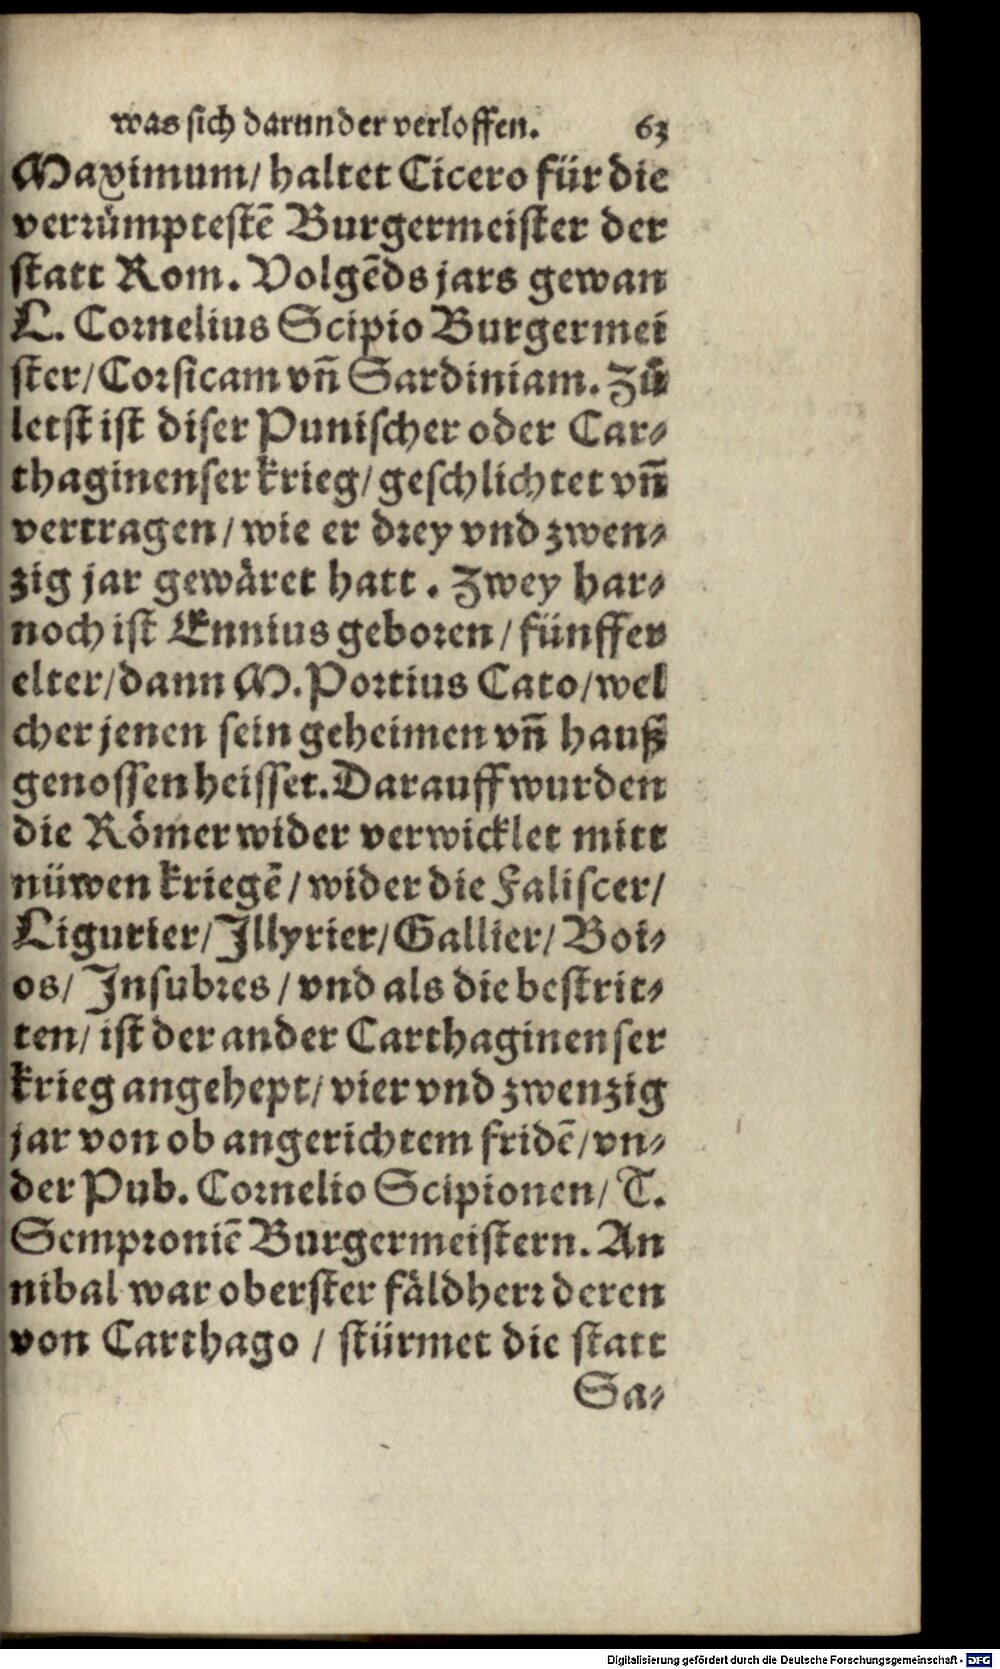 was sich darunder verloffen. 63
Maximum/ haltet Cicero für die
verrümptestē Burgermeister der
statt Rom. Volgēds jars gewan
L. Cornelius Scipio Burgermei
ster/ Corsicam vñ Sardiniam. Zů
letst ist diser Punischer oder Car⸗
thaginenser krieg/ geschlichtet vñ
vertragen/ wie er drey vnd zwen⸗
zig jar gewäret hatt. Zwey har⸗
noch ist Ennius geboren/ fünffer
elter/ dann M. Portius Cato/ wel
cher jenen sein geheimen vñ hauß
genossen heisset. Darauff wurden
die Römer wider verwicklet mitt
nüwen kriegē/ wider die Faliscer/
Ligurier/ Illyrier/ Gallier/ Boi⸗
os/ Insubres/ vnd als die bestrit⸗
ten/ ist der ander Carthaginenser
krieg angehept/ vier vnd zwenzig
jar von ob angerichtem fridē/ vn⸗
der Pub. Cornelio Scipionen/ T.
Semproniē Burgermeistern. An
nibal war oberster fäldherr deren
von Carthago / stürmet die statt
Sa⸗
Digitalisierung gefördert durch die Deutsche Forschungsgemeinschaft - DFG